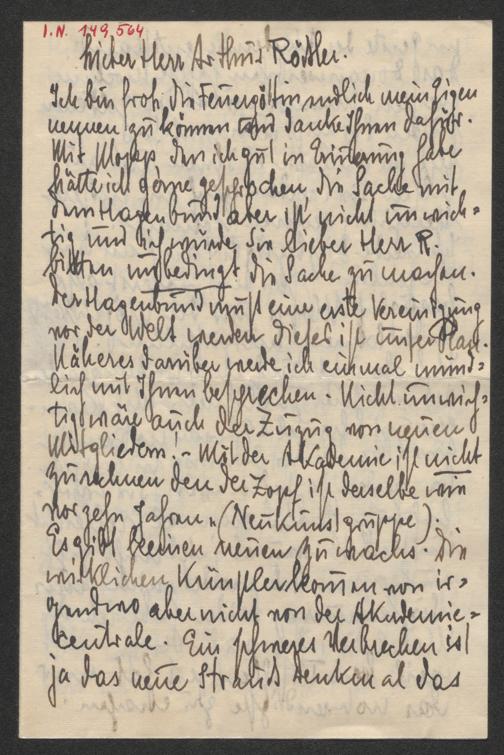 I.N. 149,564
Lieber Herr Arthur Rößler.
Ich bin froh, die Feuergöttin endlich mein Eigen
nennen zu können und danke Ihnen dafür.
Mit den ich gut in Erinnerung habe
hätte ich gerne gesprochen die Sache mit
dem Hagenbund aber ist nicht unwich=
tig und ich würde Sie lieber Herr R.
bitten unbedingt die Sache zu machen.
Der Hagenbund muß eine erste Vereinigung
vor der Welt werden dieses ist unser Plan.
Näheres darüber werde ich einmal münd=
lich mit Ihnen besprechen. Nicht unwich=
tig wäre auch der Zuzug von neuen
Mitgliedern! - Mit der Akademie ist nicht
zu rechnen den der Zopf ist derselbe wie
vor zehn Jahren. (Neukunstgruppe).
Es gibt keinen neuen Zuwachs. Die
wirklichen Künstler kommen von ir=
gendwo aber nicht von der Akademie=
centrale. Ein schweres Verbrechen ist
ja das neue Strauß Denkmal das